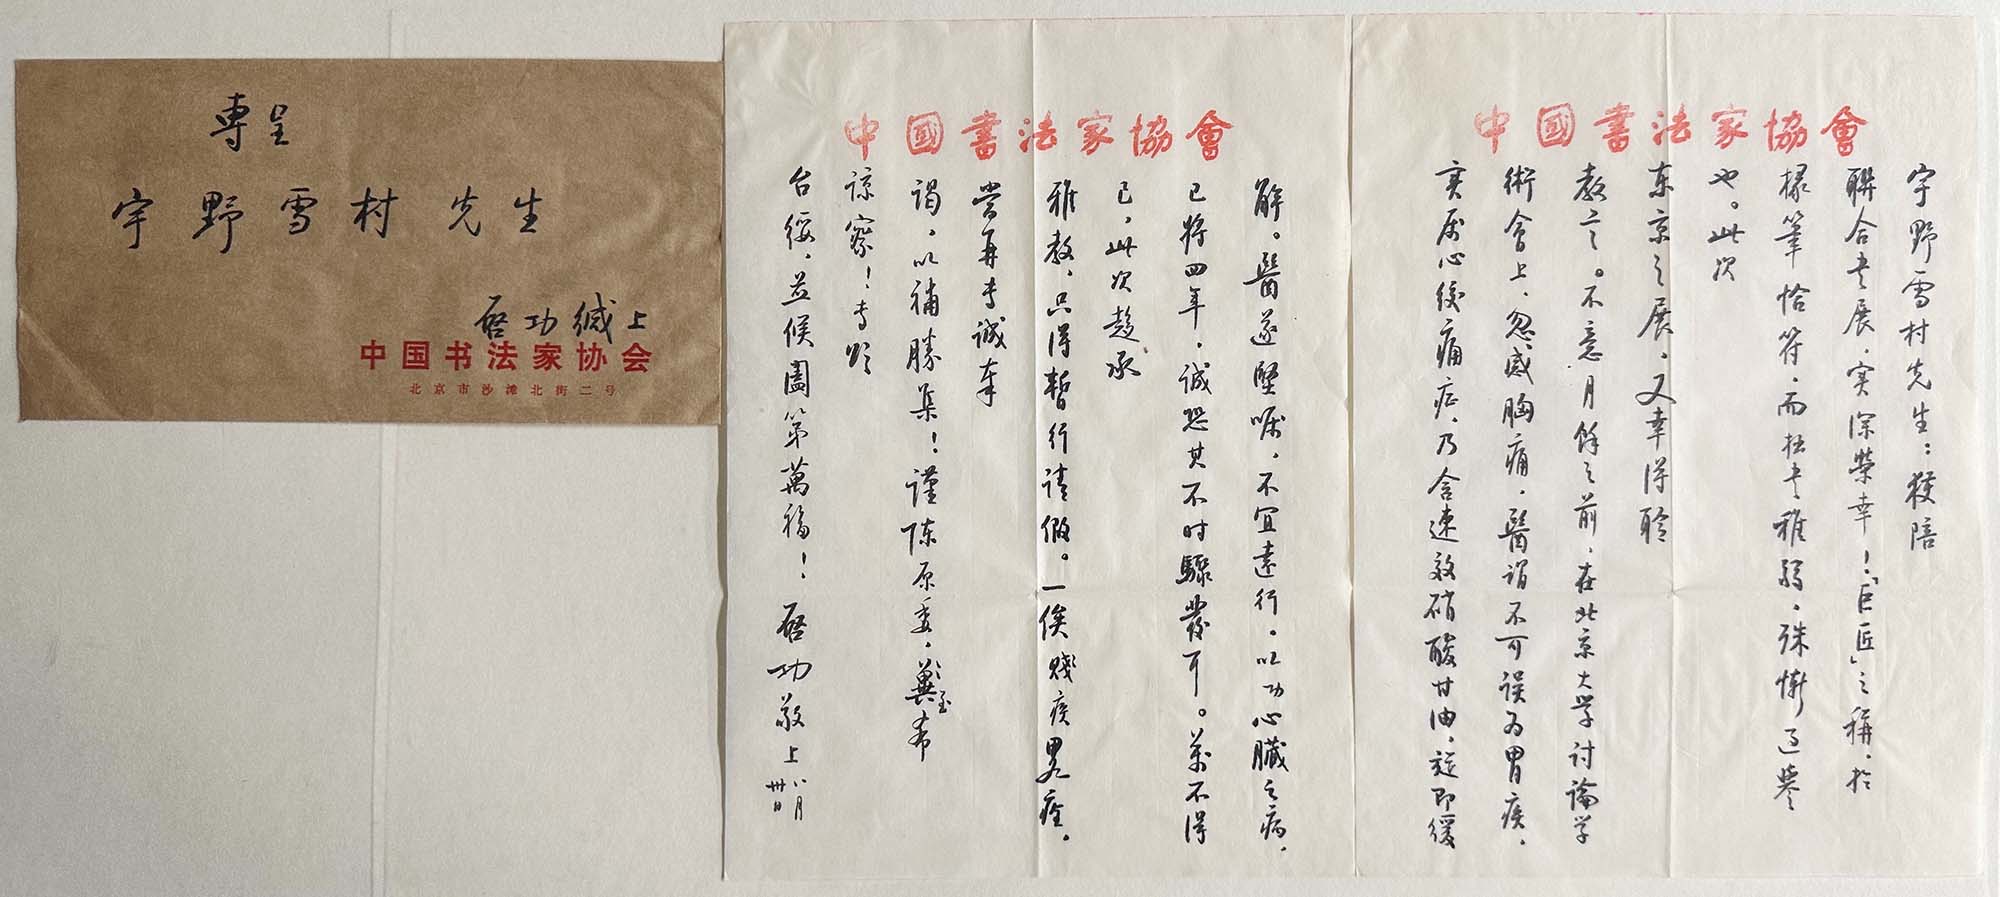 專呈
宇野雪村先生
启功缄上
中国书法家协会
北京市沙滩北街二号
中國書法家協會
宇野雪村先生：獲陪
聯合書展，实深榮幸！「巨匠」之稱，於
椽筆恰符，而拙書稚弱，殊慚過譽
也。此次
东京之展，又幸得聆
教言。不意月餘之前，在北京大学讨論学
術會上，忽感胸痛，醫謂不可误为胃疾，
实属心绞痛症，乃含速效硝酸甘油，旋即缓
中國書法家協會
解。醫遂堅嘱，不宜遠行。以功心臟之病，
已将四年，诚恐其不时驟發耳。万不得
已，此次趋承
雅教，只得暫行请假。一俟贱疾畧痊，
当再专诚奉
谒，以補勝集！谨陈原委，至希
谅察！专颂
台绥，并候阖第萬福！启功敬上 八月卅日